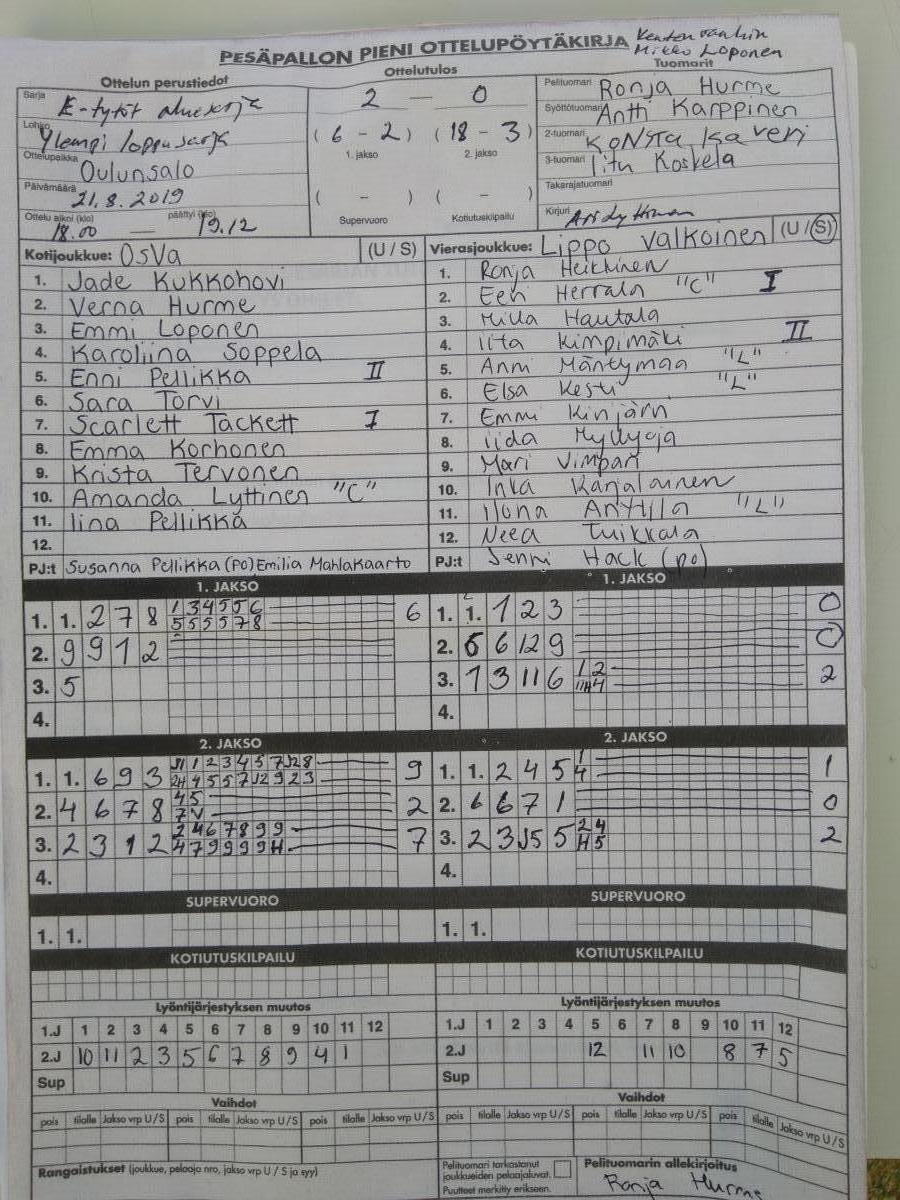 PESÄPALLON PIENI OTTELUPÖYTÄKIRJA
Mikko Loponen
Ottelun perustiedot
Ottelutulos
Tuomarit
Sarja E-tytöt aluesarja
Lohko Ylempi loppusarja
Ottelupaikka Oulunsalo
Päivämäärä 21.8.2019
Ottelu alkoi (klo) 18.00 — päättyi (klo) 19.12
2 — 0
( 6 - 2 ) ( 18 - 3 )
1. jakso 2. jakso
( - ) ( - )
Supervuoro Kotiutuskilpailu
Pelituomari Ronja Hurme
Syöttötuomari Antti Karppinen
2-tuomari Konsta Kaveri
3-tuomari Iitu Koskela
Takarajatuomari
Kirjuri
Kotijoukkue: OsVa (U / S)
1. Jade Kukkohovi
2. Verna Hurme
3. Emmi Loponen
4. Karoliina Soppela
5. Enni Pellikka II
6. Sara Torvi
7. Scarlett Tackett I
8. Emma Korhonen
9. Krista Tervonen
10. Amanda Lyttinen "C"
11. Iina Pellikka
12.
PJ:t Susanna Pellikka (PO) Emilia Mahlakaarto
Vierasjoukkue: Lippo Valkoinen (U / S)
1. Ronja Heikkinen
2. Eeri Herrala "C" I
3. Milla Hautala
4. Iita Kimpimäki II
5. Anni Mäntymaa "L"
6. Elsa Kesti "L"
7. Emmi Kinjärn
8. Iida Myllyoja
9. Mari Vimpari
10. Inka Karjalainen
11. Ilona Anttila "L"
12. Neea Tuikkala
PJ:t Jenni Hack (po)
1. JAKSO
1. 1. 2 7 8 1 3 4 5 5 6 6
5 5 5 5 7 8
2. 9 9 1 2
3. 5
4.
1. JAKSO
1. 1. 1 2 3 0
2. 6 6 12 9 0
3. 1 3 11 6 1 2 2
4.
2. JAKSO
1. 1. 6 9 3 9
2. 4 6 7 8 4 5 2
7 V
3. 2 3 1 2 2 4 6 7 8 9 9 7
4 7 9 9 9 9 H
4.
2. JAKSO
1. 1. 2 4 5 1 1
4
2. 6 6 7 1 0
3. 2 3 5 2 4 2
H 5
4.
SUPERVUORO
1. 1.
SUPERVUORO
1. 1.
KOTIUTUSKILPAILU
KOTIUTUSKILPAILU
Lyöntijärjestyksen muutos
1.J 1 2 3 4 5 6 7 8 9 10 11 12
2.J 10 11 2 3 5 6 7 8 9 4 1
Sup
Lyöntijärjestyksen muutos
1.J 1 2 3 4 5 6 7 8 9 10 11 12
2.J 12 11 10 8 7 5
Sup
Vaihdot
pois tilalle Jakso vrp U / S pois tilalle Jakso vrp U / S pois tilalle Jakso vrp U / S
Vaihdot
pois tilalle Jakso vrp U / S pois tilalle Jakso vrp U / S pois tilalle Jakso vrp U / S
Rangaistukset (joukkue, pelaaja nro, jakso vrp U / S ja syy)
Pelituomari tarkastanut
joukkueiden pelaajaluvat.
Puutteet merkitty erikseen.
Pelituomarin allekirjoitus
Ronja Hurme